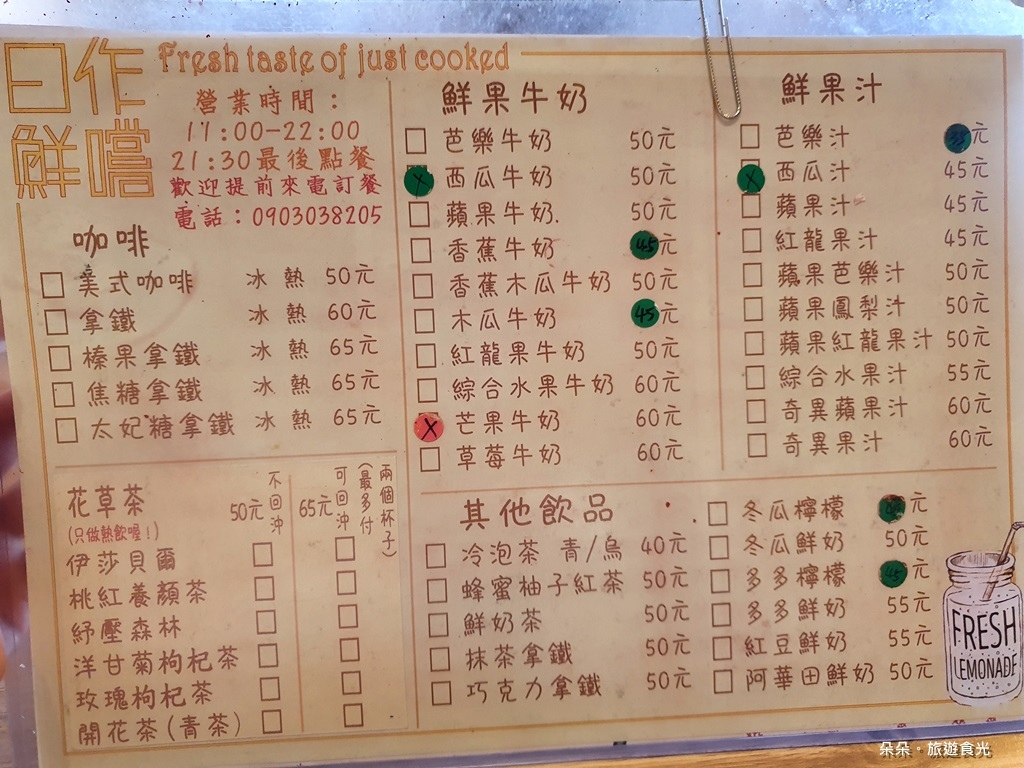 日作
鮮嚐
Fresh taste of just cooked
營業時間：
17:00-22:00
21:30最後點餐
歡迎提前來電訂餐
電話：0903038205
咖啡
美式咖啡 冰 熱 50元
拿鐵 冰 熱 60元
榛果拿鐵 冰 熱 65元
焦糖拿鐵 冰 熱 65元
太妃糖拿鐵 冰 熱 65元
花草茶 50元 不回沖 65元 可回沖 (最多付兩個杯子)
(只做熱飲喔！)
伊莎貝爾
桃紅養顏茶
紓壓森林
洋甘菊枸杞茶
玫瑰枸杞茶
開花茶(青茶)
鮮果牛奶
芭樂牛奶 50元
X 西瓜牛奶 50元
蘋果牛奶 50元
香蕉牛奶 45元
香蕉木瓜牛奶 50元
木瓜牛奶 45元
紅龍果牛奶 50元
綜合水果牛奶 60元
X 芒果牛奶 60元
草莓牛奶 60元
鮮果汁
芭樂汁 元
X 西瓜汁 45元
蘋果汁 45元
紅龍果汁 45元
蘋果芭樂汁 50元
蘋果鳳梨汁 50元
蘋果紅龍果汁 50元
綜合水果汁 55元
奇異蘋果汁 60元
奇異果汁 60元
其他飲品
冷泡茶 青/烏 40元
蜂蜜柚子紅茶 50元
鮮奶茶 50元
抹茶拿鐵 50元
巧克力拿鐵 50元
冬瓜檸檬 元
冬瓜鮮奶 50元
多多檸檬 元
多多鮮奶 55元
紅豆鮮奶 55元
阿華田鮮奶 50元
FRESH
LEMONADE
朵朵。旅遊食光